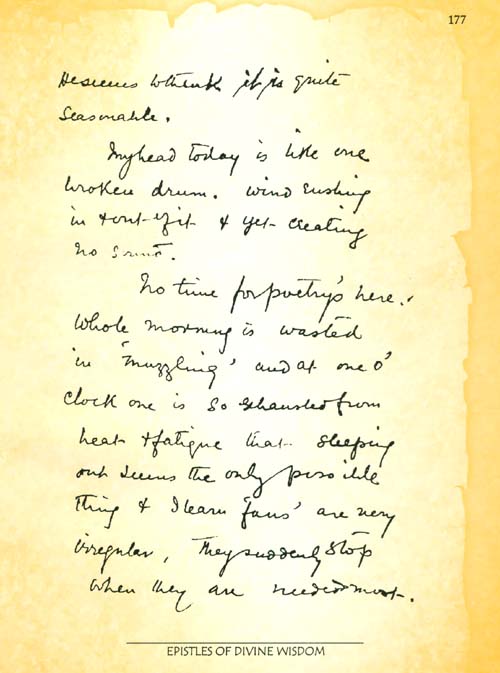 177
He seems to think it is quite
seasonable.
My head today is like one
broken drum. wind rushing
in & out of it & yet creating
no sound.
No time for poetry's here.
Whole morning is wasted
in 'muzzling' and at one o'
clock one is so exhausted from
heat & fatigue that sleeping
out seems the only possible
thing & I learn 'fans' are very
irregular, They suddenly stop
when they are needed most.
EPISTLES OF DIVINE WISDOM